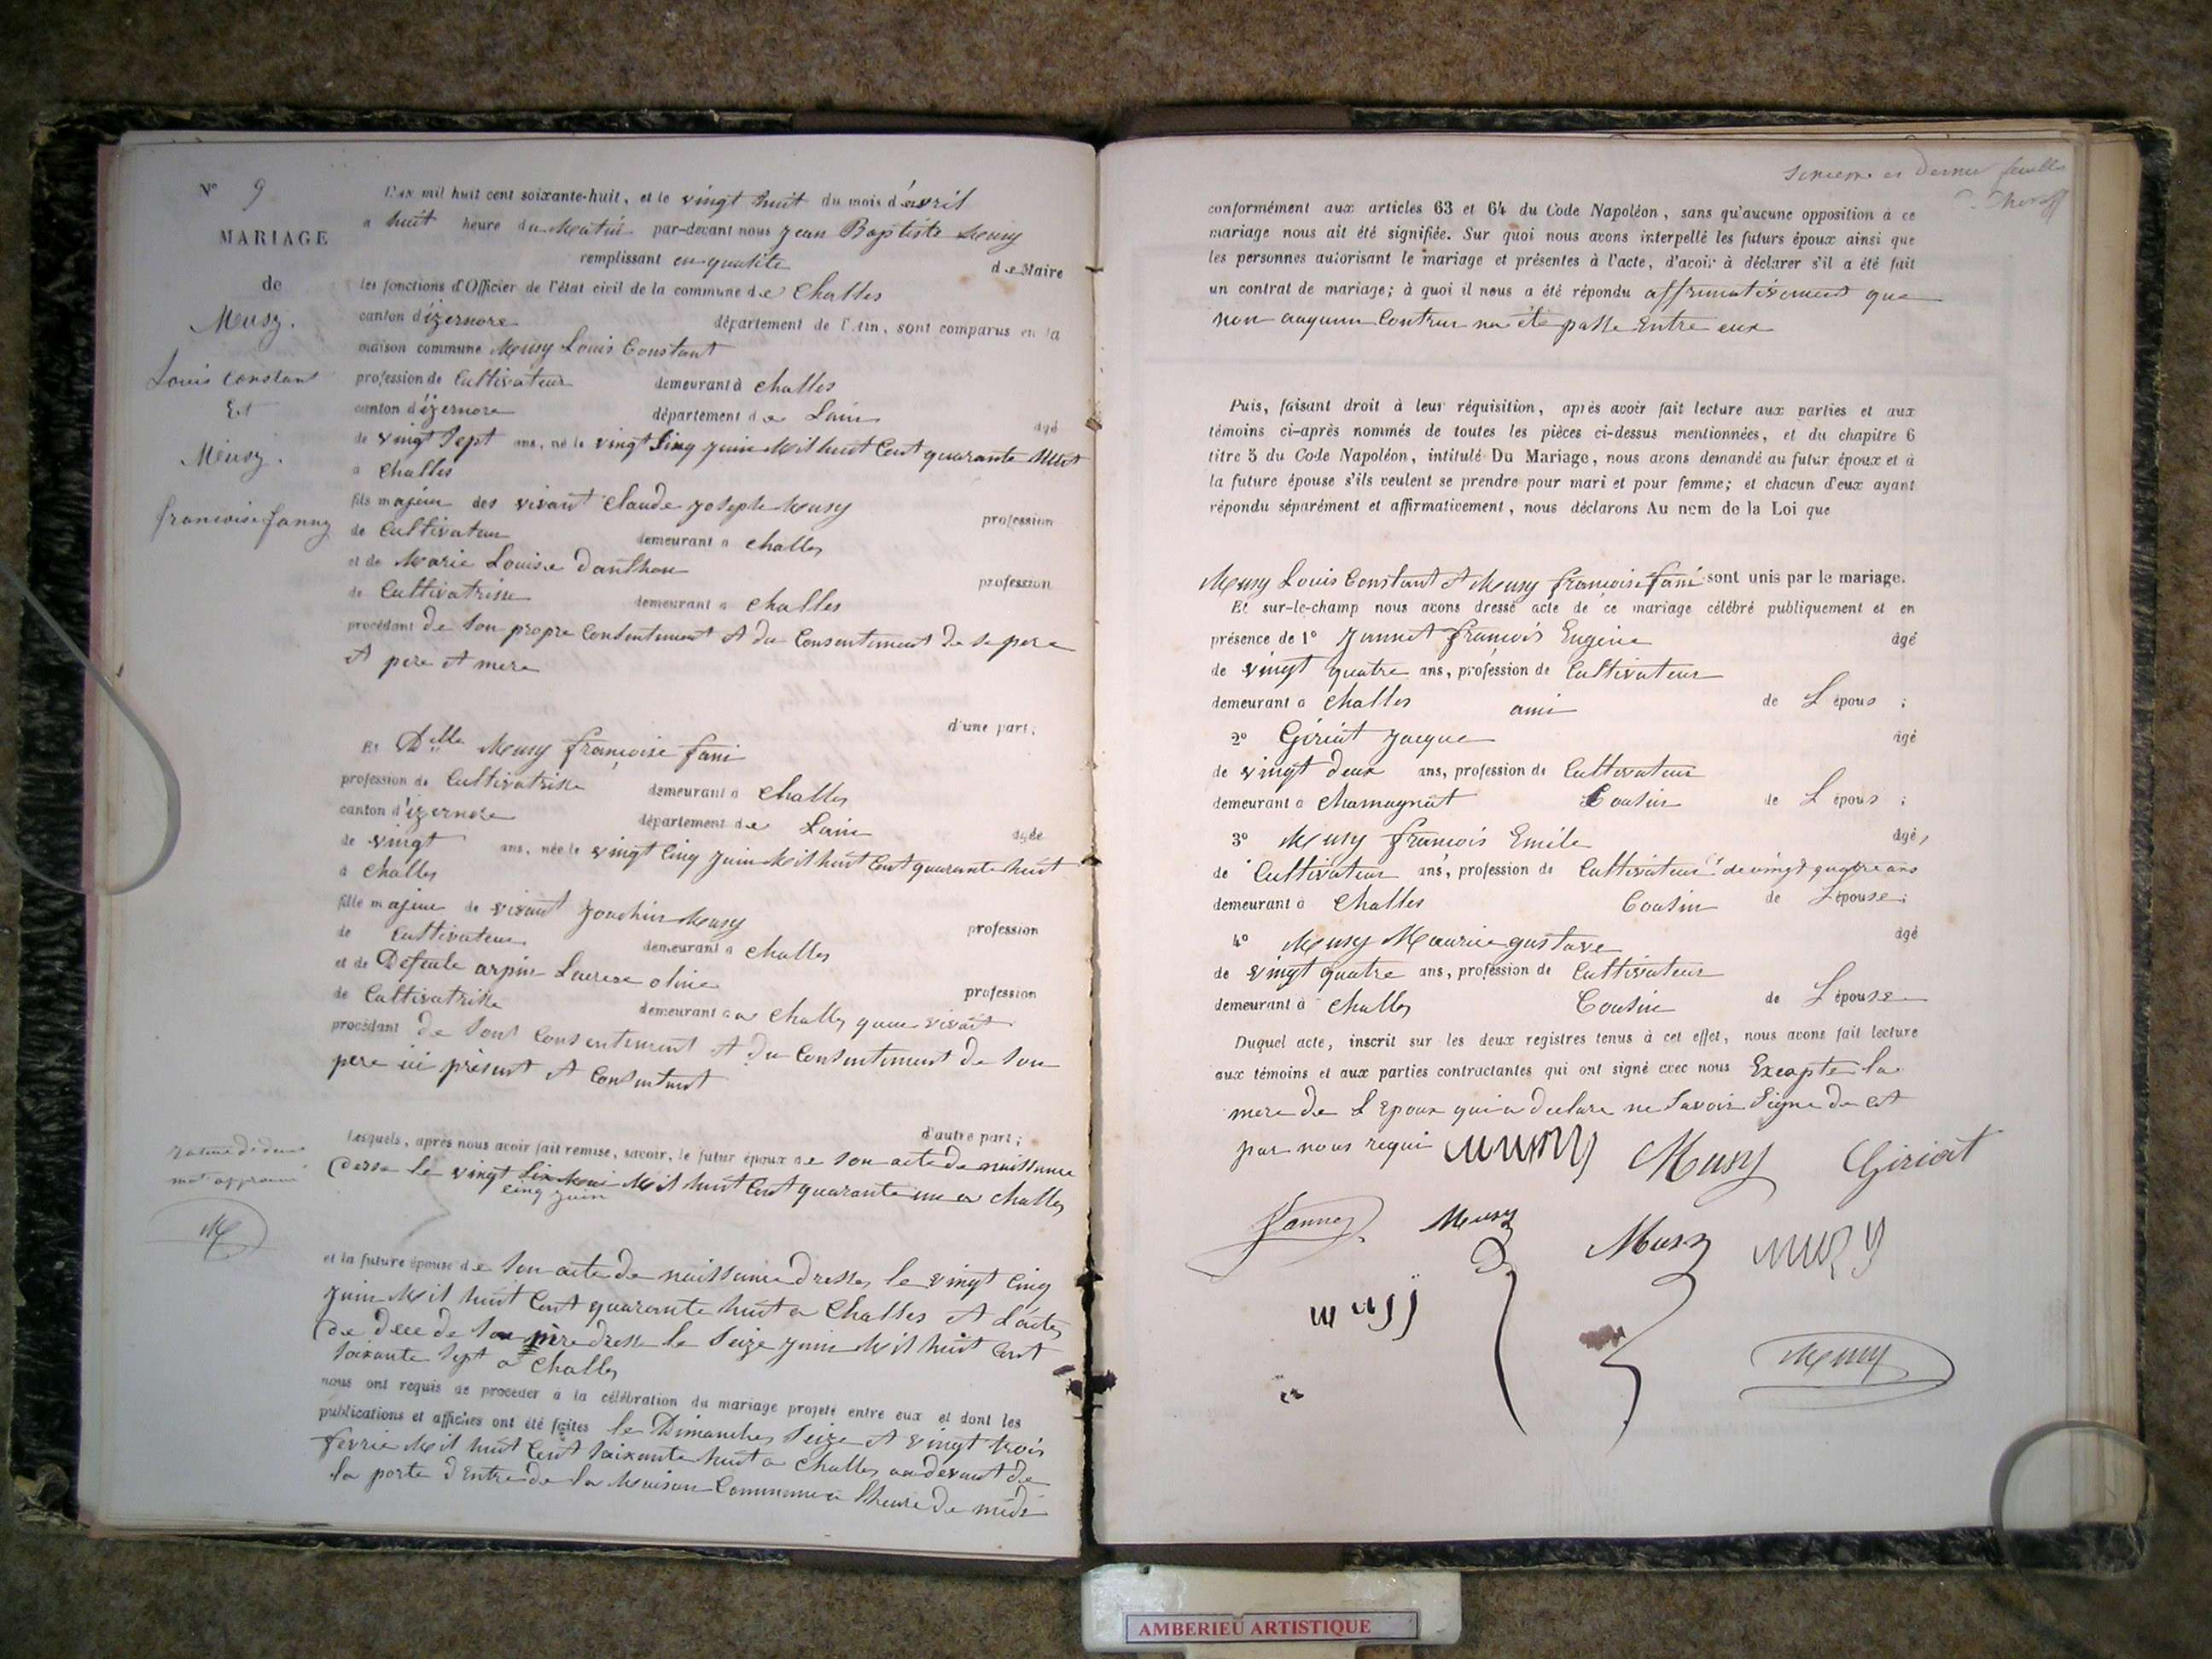 N° 9
MARIAGE
de
Musy.
Louis Constant
Et
Musy.
francoise fanny
L'an mil huit cent soixante-huit, et le vingt huit du mois d'avril
a huit heure du Matin par-devant nous Jean Baptiste Musy
remplissant en qualite de Maire
les fonctions d'Officier de l'état civil de la commune de Challes
canton d'izernore département de l'Ain, sont comparus en la
maison commune Musy Louis Constant
profession de Cultivateur demeurant à Challes
canton d'izernore département de Lain âgé
de vingt Sept ans, né le vingt Sinq Juin Mil huit Cent quarante
à Challes
fils majeur des vivant Claude Joseph Musy profession
de Cultivateur demeurant à Challes
et de Marie Louise Danthon profession
de Cultivatrisse demeurant à Challes
procédant de son propre Consentement et du Consentement de se pere
et pere et mere
d'une part;
Et Delle Musy françoise fani
profession de Cultivatrisse demeurant à Challes
canton d'izernore département de Lain âgée
de vingt ans, née le vingt Cinq Juin Mil huit Cent quarante huit
à Challes
fille majeur de vivant Joachin Musy profession
de Cultivateur demeurant à Challes
et de Defeule arpin oline profession
de Cultivatrisse demeurant à a Challes vivait
procédant de Sont Consentement et du Consentement de Son
pere ici présent et Consentent
d'autre part;
Lesquels, après nous avoir fait remise, savoir, le futur époux de Son acte de naissance
Desse le vingt Six Mai Mil huit Cent quarante un a Challes
cinq juin
mot approuvé
M
et la future épouse de Son acte de naissance Dresses le vingt Cinq
Juin Mil huit Cent quarante huit a Challes et L'actes
De dece de Sa mère dresse le Seize Juin Mil huit Cent
Soixante Sept a Challes
nous ont requis de procéder à la célébration du mariage projeté entre eux et dont les
publications et affiches ont été faites le Dimanches Seize et vingt trois
fevrie Mil huit Cent Soixante huit a Challes au devant de
la porte d'Entre de la Maison Commune a lheure de midi
Dernier feuille
conformément aux articles 63 et 64 du Code Napoléon, sans qu'aucune opposition à ce
mariage nous ait été signifiée. Sur quoi nous avons interpellé les futurs époux ainsi que
les personnes autorisant le mariage et présentes à l'acte, d'avoir à déclarer s'il a été fait
un contrat de mariage; à quoi il nous a été répondu affirmativement que
non auqunn Contrur na été passe Entre eux
Puis, faisant droit à leur réquisition, après avoir fait lecture aux parties et aux
témoins ci-après nommés de toutes les pièces ci-dessus mentionnées, et du chapitre 6
titre 5 du Code Napoléon, intitulé Du Mariage, nous avons demandé au futur époux et à
la future épouse s'ils veulent se prendre pour mari et pour femme; et chacun d'eux ayant
répondu séparément et affirmativement, nous déclarons Au nom de la Loi que
Musy Louis Constant et Musy françoise fani sont unis par le mariage.
Et sur-le-champ nous avons dressé acte de ce mariage célébré publiquement et en
présence de 1° Jannet françois Eugène âgé
de vingt quatre ans, profession de Cultivateur
demeurant à Challes ami de L époux ;
2° Giriat Jacque âgé
de vingt deux ans, profession de Cultivateur
demeurant à Chamagnat Cousin de L époux ;
3° Musy françois Emile âgé,
de Cultivateur ans, profession de Cultivateur de vingt quatre ans
demeurant à Challes Cousin de L'épouse;
4° Musy Maurice gustave âgé
de vingt quatre ans, profession de Cultivateur
demeurant à Challes Cousin de L épouse
Duquel acte, inscrit sur les deux registres tenus à cet effet, nous avons fait lecture
aux témoins et aux parties contractantes qui ont signé avec nous Exeapte la
mere de L Epoux qui a declare ne Savoir Signe de cet
par nous requi Musy Musy Giriat
Musy Musy
musy
Musy
AMBERIEU ARTISTIQUE